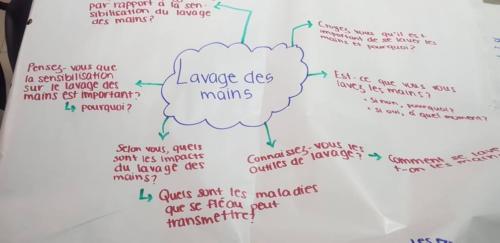 par rapport à la sen-
sibilisation du lavage
des mains?
Croyez vous qu'il est
important de se laver les
mains et pourquoi?
Pensez-vous que
la sensibilisation
sur le lavage des
mains est important?
↳ pourquoi?
Lavage des
mains
Est-ce que vous vous
lavez les mains?
• Si non, pourquoi?
• Si oui, à quel moment?
Selon vous, quels
sont les impacts
du lavage des
mains?
↳ Quels sont les maladies
que se fléau peut
transmettre?
Connaissez-vous les
outiles de lavage?
→ Comment se lave
t-on les mains